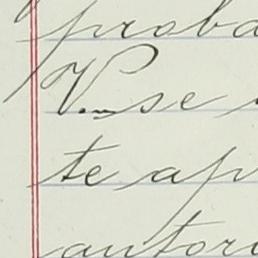 proba
V. se
te ap
autori